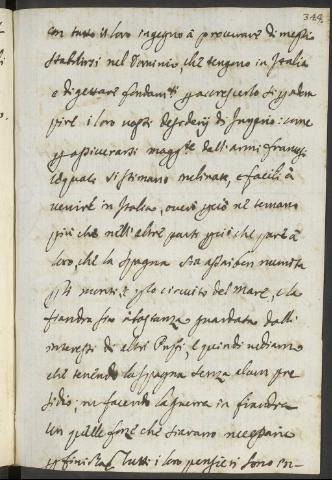 348
con tutto il loro ingegno à procurare di meglio
stabilirsi nel Dominio, che tengono in Italia
e di gettare fondam.ti p accrescerlo si p adem
pire i loro vasti desiderij di Imperio: come
p assicurarsi magg.te dall'armi francesi
le quali si stimano inclinate, e facili à
venire in Italia, ove più ne temano
più che nell'altre parti più che pare à
loro, che la Spagna sia assai ben munita
p li monti, e p lo circuito del Mare, e la
fiandra sia à bastanza guardata dall'
interessi di altri Prñpi, e quindi vediamo
che tenendo la Spagna senza alcun pre
sidio; ne facendo la guerra in fiandra
con quelle forze che sariano necessarie
p finirla tutti i loro pensieri sono in-